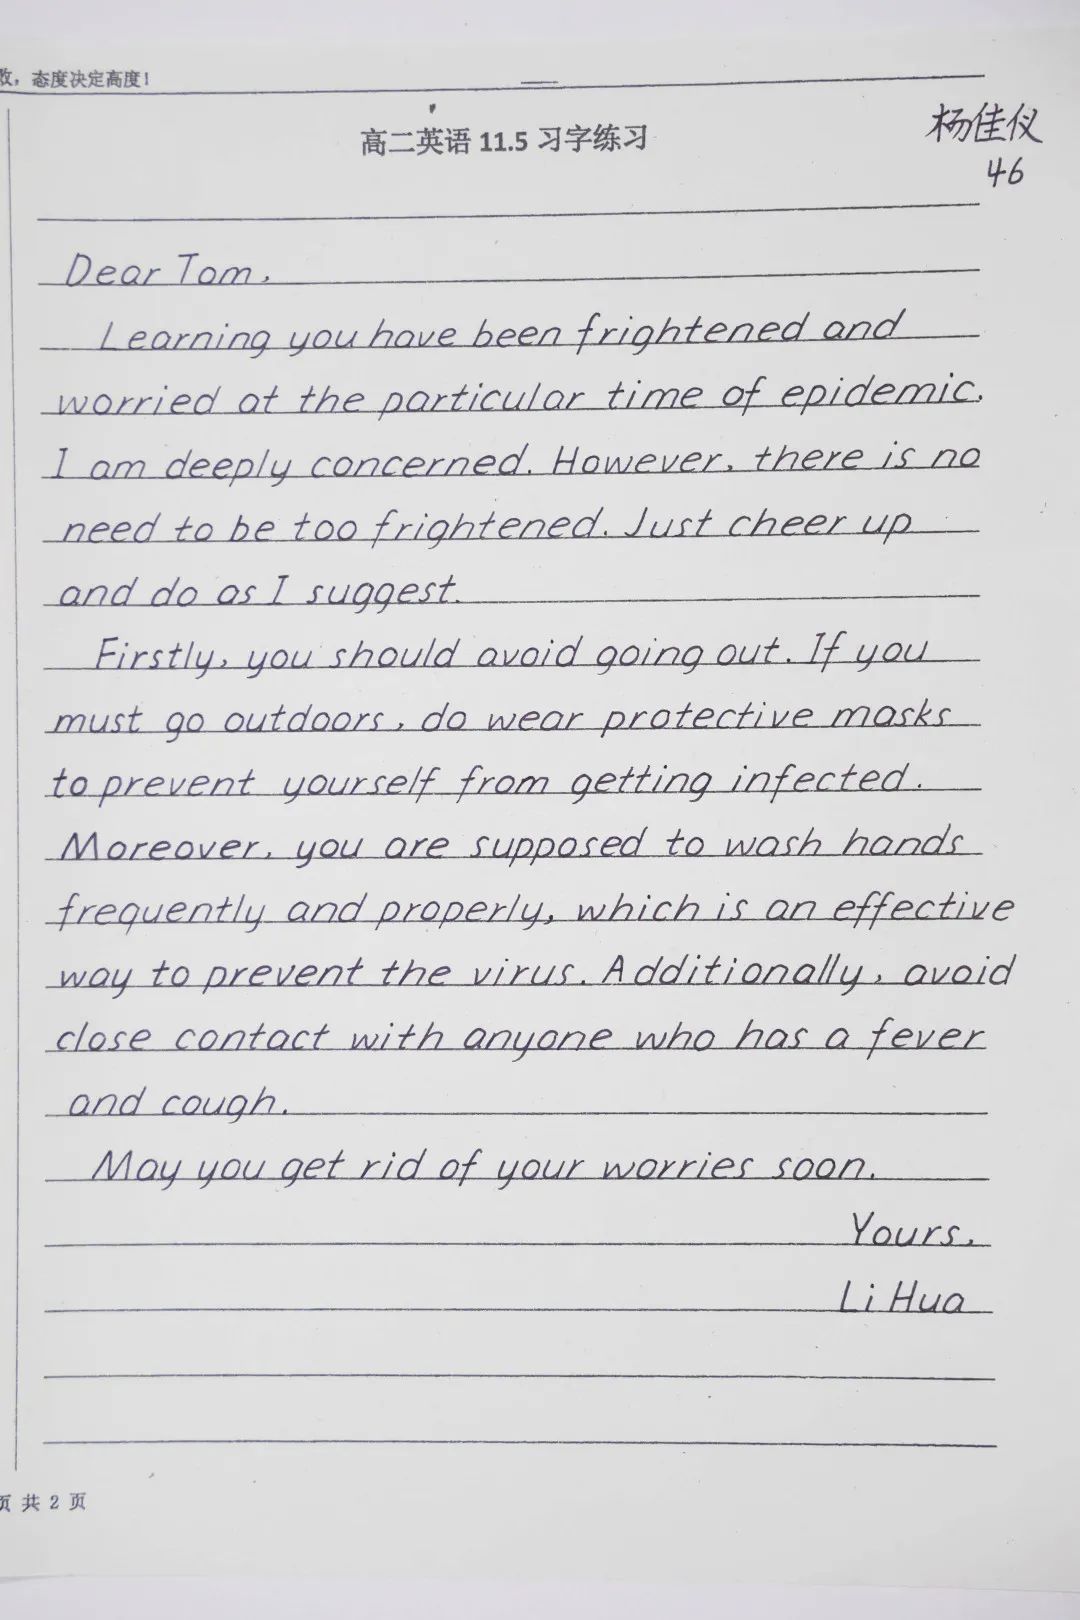 态度决定高度!
高二英语 11.5 习字练习
杨佳仪
46
Dear Tom,
Learning you have been frightened and
worried at the particular time of epidemic,
I am deeply concerned. However, there is no
need to be too frightened. Just cheer up
and do as I suggest.
Firstly, you should avoid going out. If you
must go outdoors, do wear protective masks
to prevent yourself from getting infected.
Moreover, you are supposed to wash hands
frequently and properly, which is an effective
way to prevent the virus. Additionally, avoid
close contact with anyone who has a fever
and cough.
May you get rid of your worries soon.
Yours,
Li Hua
页 共 2 页